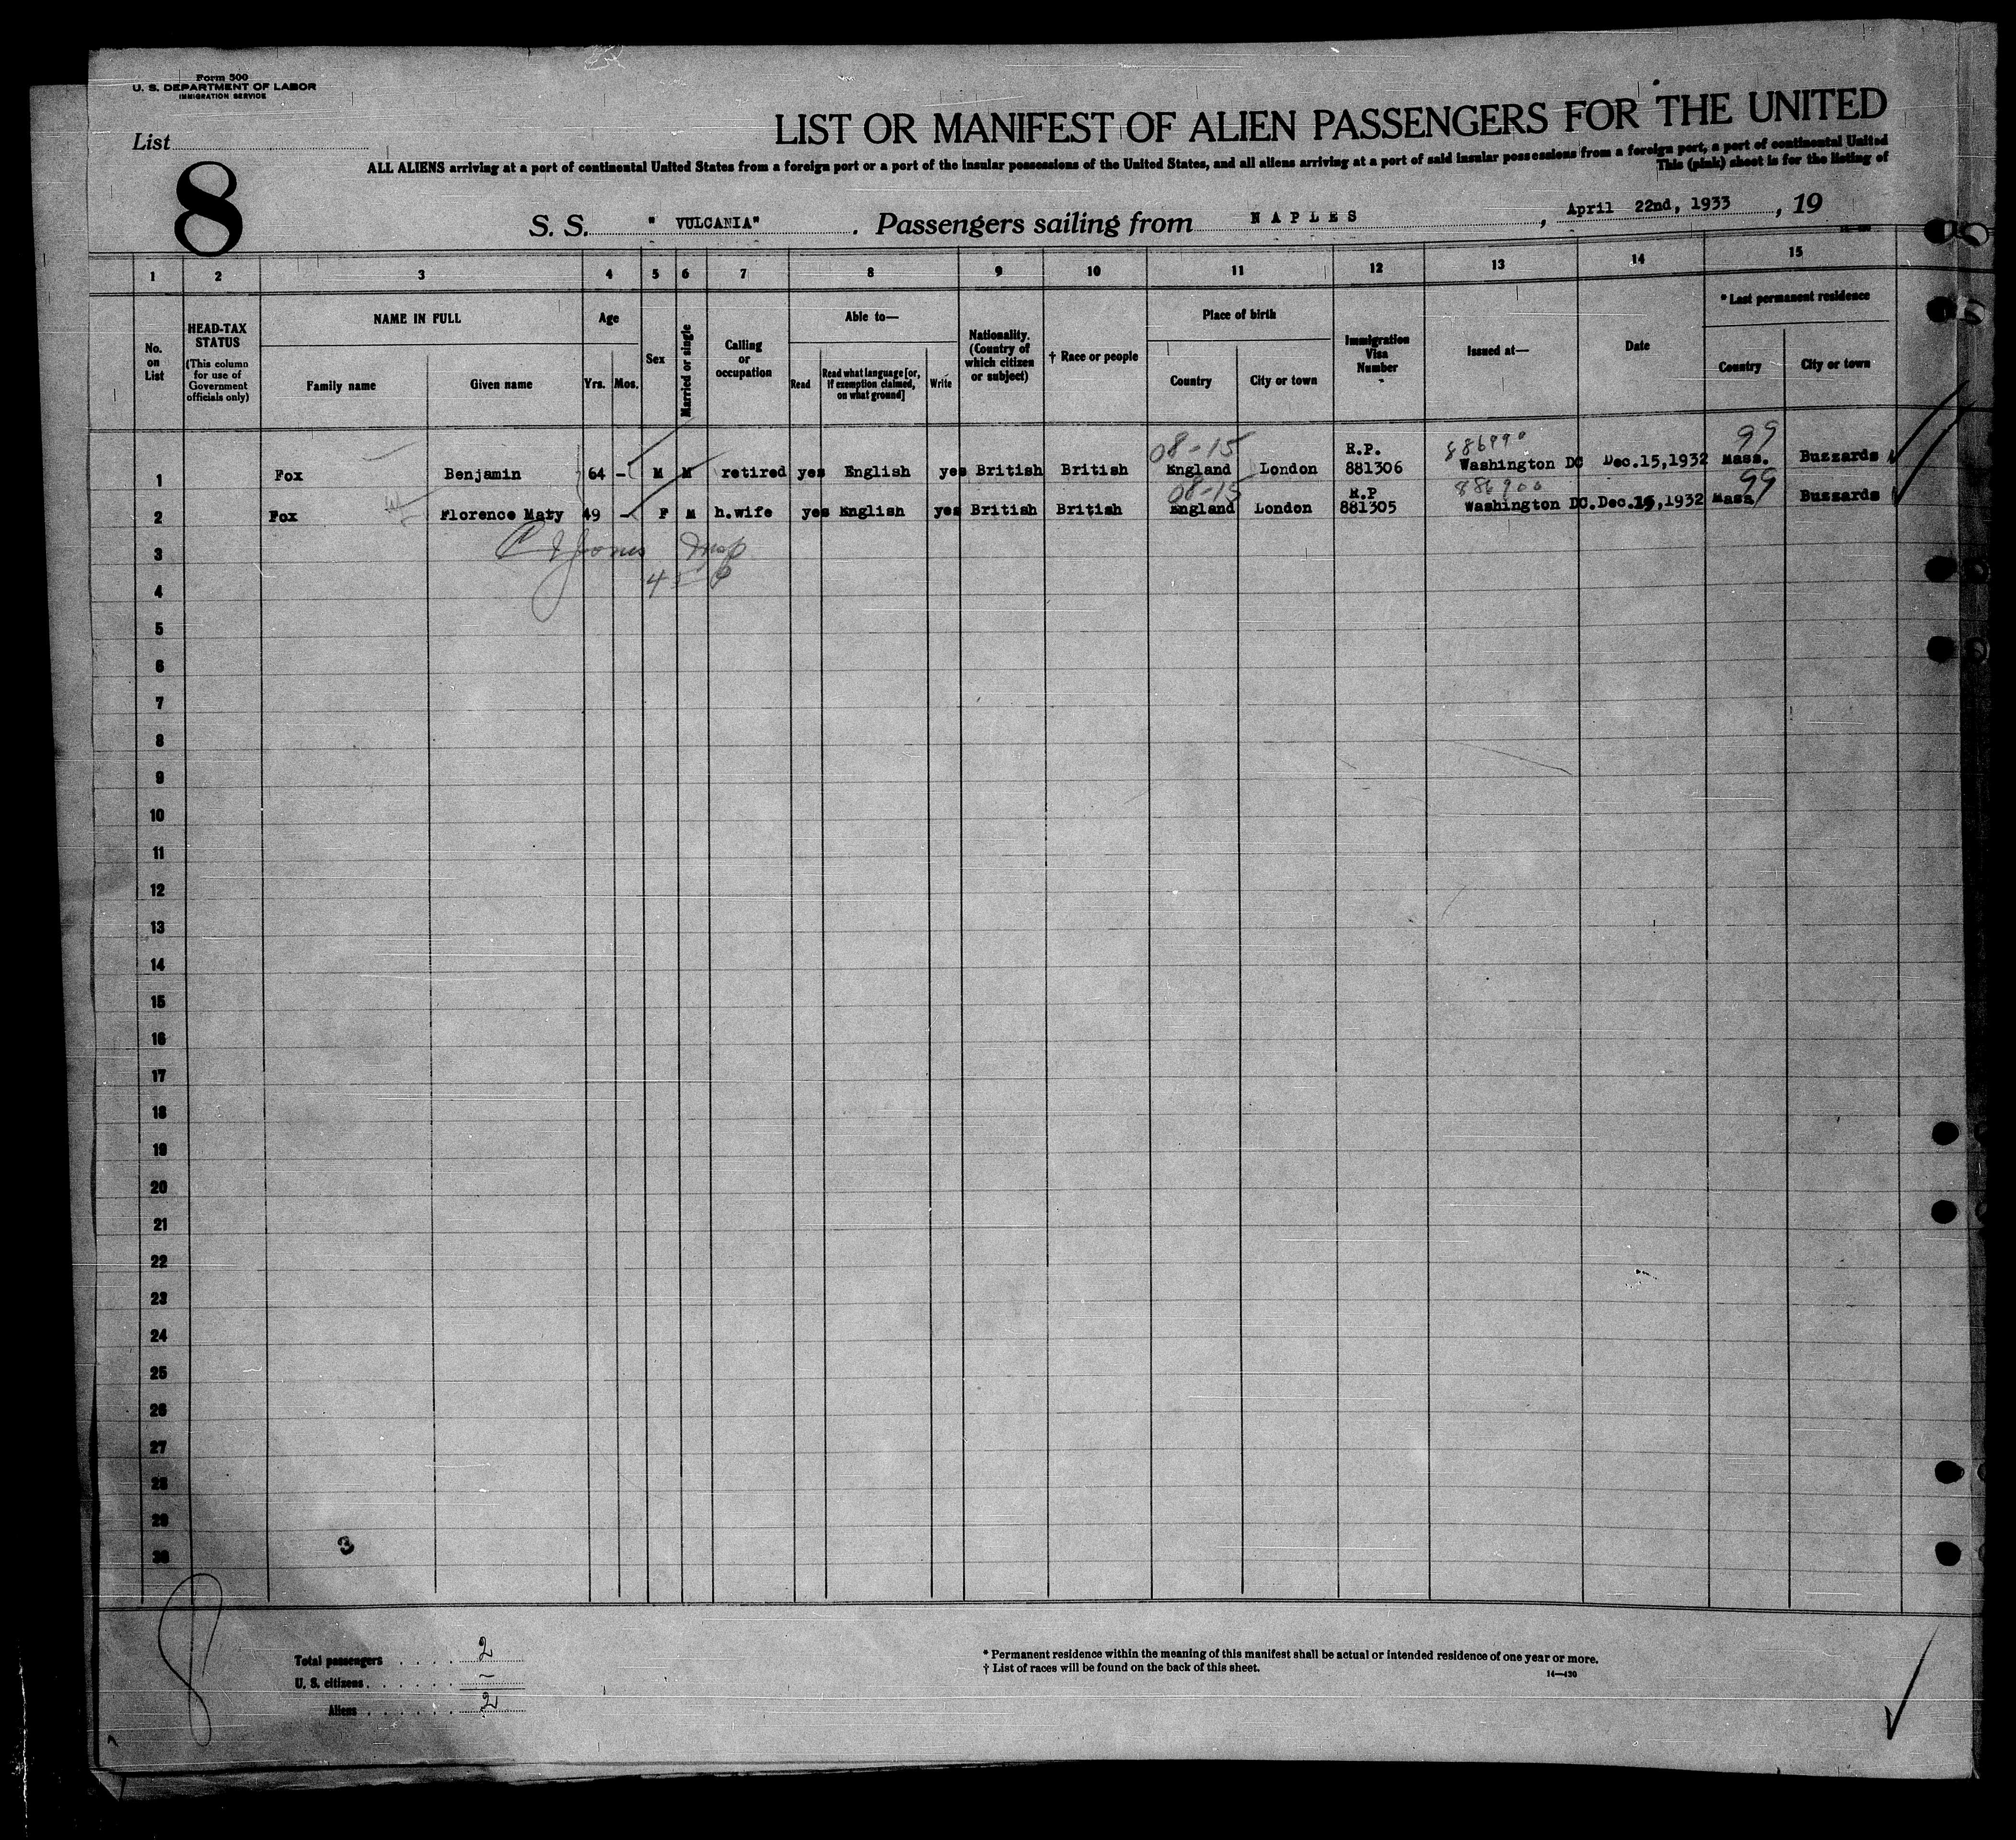 Form 500
U. S. DEPARTMENT OF LABOR
IMMIGRATION SERVICE
List
8
LIST OR MANIFEST OF ALIEN PASSENGERS FOR THE UNITED
ALL ALIENS arriving at a port of continental United States from a foreign port or a port of the insular possessions of the United States, and all aliens arriving at a port of said insular possessions from a foreign port, a port of continental United
This (pink) sheet is for the listing of
S. S. " VULCANIA" . Passengers sailing from NAPLES , April 22nd, 1933 , 19
1 2 3 4 5 6 7 8 9 10 11 12 13 14 15
No. on List
HEAD-TAX STATUS
(This column for use of Government officials only)
NAME IN FULL
Family name
Given name
Age
Yrs.
Mos.
Sex
Married or single
Calling or occupation
Able to—
Read
Read what language [or, if exemption claimed, on what ground]
Write
Nationality. (Country of which citizen or subject)
† Race or people
Place of birth
Country
City or town
Immigration Visa Number
Issued at—
Date
* Last permanent residence
Country
City or town
08-15 R.P. 99
1 Fox Benjamin 64 - M M retired yes English yes British British England London 881306 Washington DC Dec.15,1932 Mass. Buzzards
08-15 R.P 886900 99
2 Fox Florence Mary 49 - F M h.wife yes English yes British British England London 881305 Washington DC. Dec.15,1932 Mass Buzzards
3
4
5
6
7
8
9
10
11
12
13
14
15
16
17
18
19
20
21
22
23
24
25
26
27
28
29
30
3
8
Total passengers . . . . 2
U. S. citizens . . . . . . –
Aliens . . . . . . 2
* Permanent residence within the meaning of this manifest shall be actual or intended residence of one year or more.
† List of races will be found on the back of this sheet.
14—430